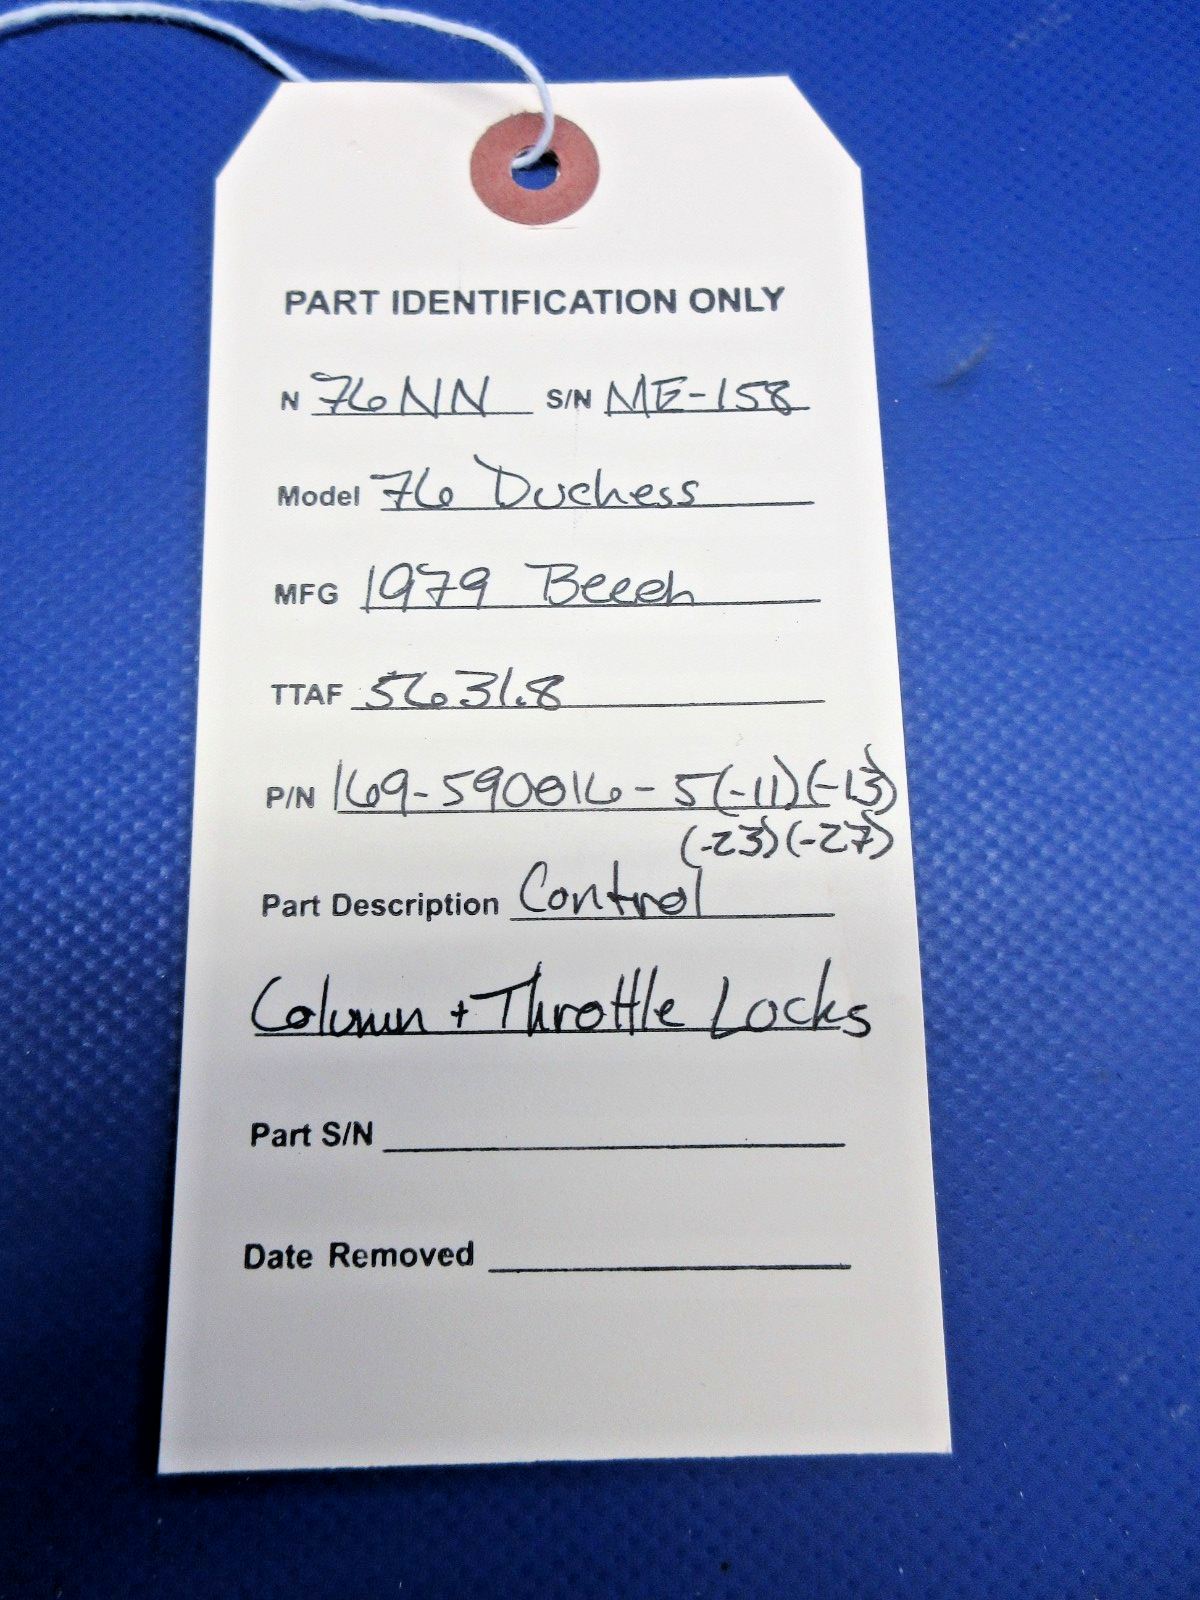 PART IDENTIFICATION ONLY
N 76NN S/N ME-158
Model 76 Duchess
MFG 1979 Beech
TTAF 5631.8
P/N 169-590016-5(-11)(-13)
(-23)(-27)
Part Description Control
Column + Throttle Locks
Part S/N
Date Removed